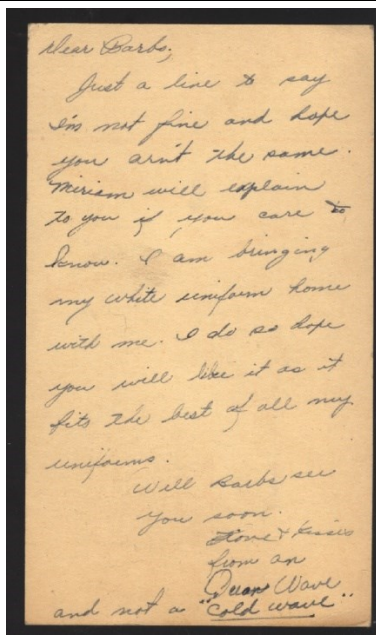 Dear Barbs,
Just a line to say
I'm not fine and hope
you arn't the same.
Miriam will explain
to you if you care to
know. I am bringing
my white uniform home
with me. I do so hope
you will like it as it
fits the best of all my
uniforms.
Will Barbs see
you soon.
Love & Kisses
from an
Wave
and not a "Cold wave"